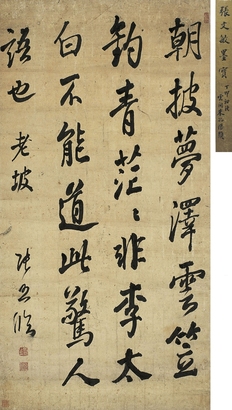 張文敏墨寶
朝披夢澤雲笠
釣青茫〻非李太
白不能道此驚人
語也 老坡 張照臨